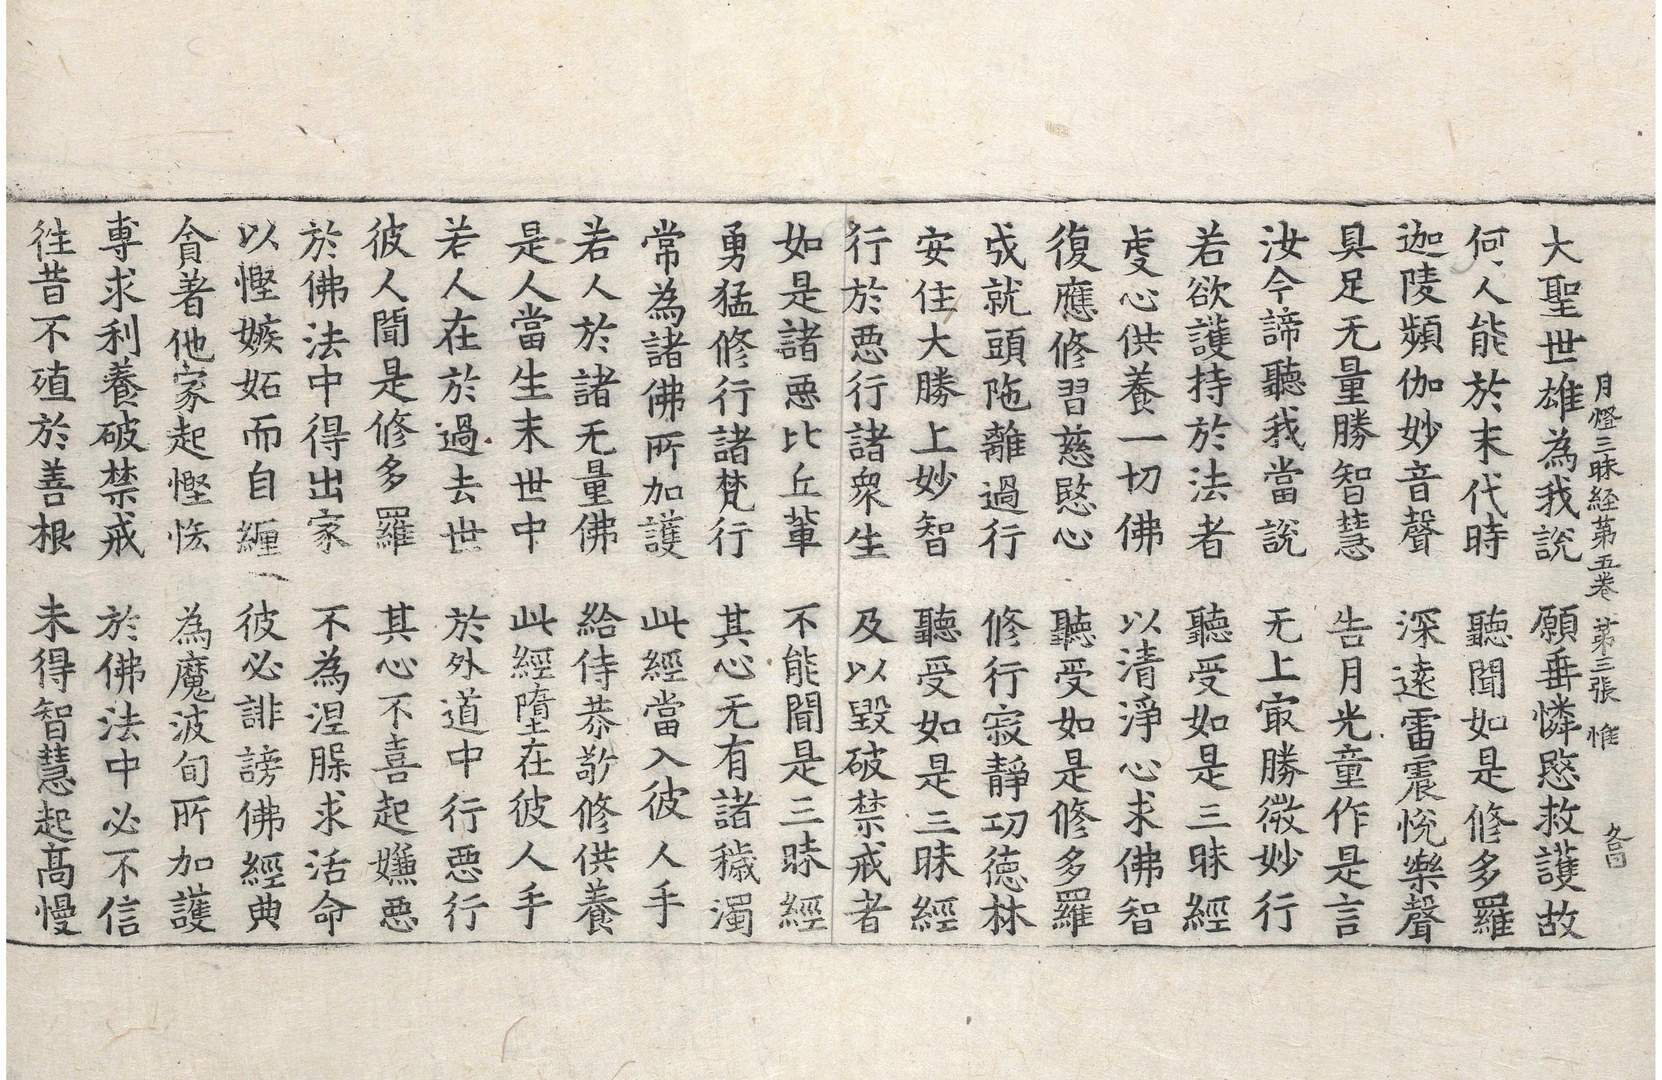 月燈三昧経苐五巻　苐三張　惟
大聖世雄為我說　願垂憐愍救護故
何人能於末代時　聽聞如是修多羅
迦陵頻伽妙音聲　深遠雷震悅樂聲
具足无量勝智慧　告月光童作是言
汝今諦聽我當說　无上㝡勝微妙行
若欲護持於法者　聽受如是三昧經
虔心供養一切佛　以清淨心求佛智
復應修習慈愍心　聽受如是修多羅
成就頭陁離過行　修行寂靜功德林
安住大勝上妙智　聽受如是三昧經
行於悪行諸衆生　及以毀破禁戒者
如是諸悪比丘軰　不能聞是三昧經
勇猛修行諸梵行　其心无有諸穢濁
常為諸佛所加護　此經當入彼人手
若人於諸无量佛　給侍恭敬修供養
是人當生末世中　此經墮在彼人手
若人在於過去世　於外道中行悪行
彼人聞是修多羅　其心不喜起嫌悪
於佛法中得出家　不為涅槃求活命
以慳嫉妬而自纒　彼必誹謗佛經典
貪著他家起慳悋　為魔波旬所加護
専求利養破禁戒　於佛法中必不信
徃昔不殖於善根　未得智慧起髙慢